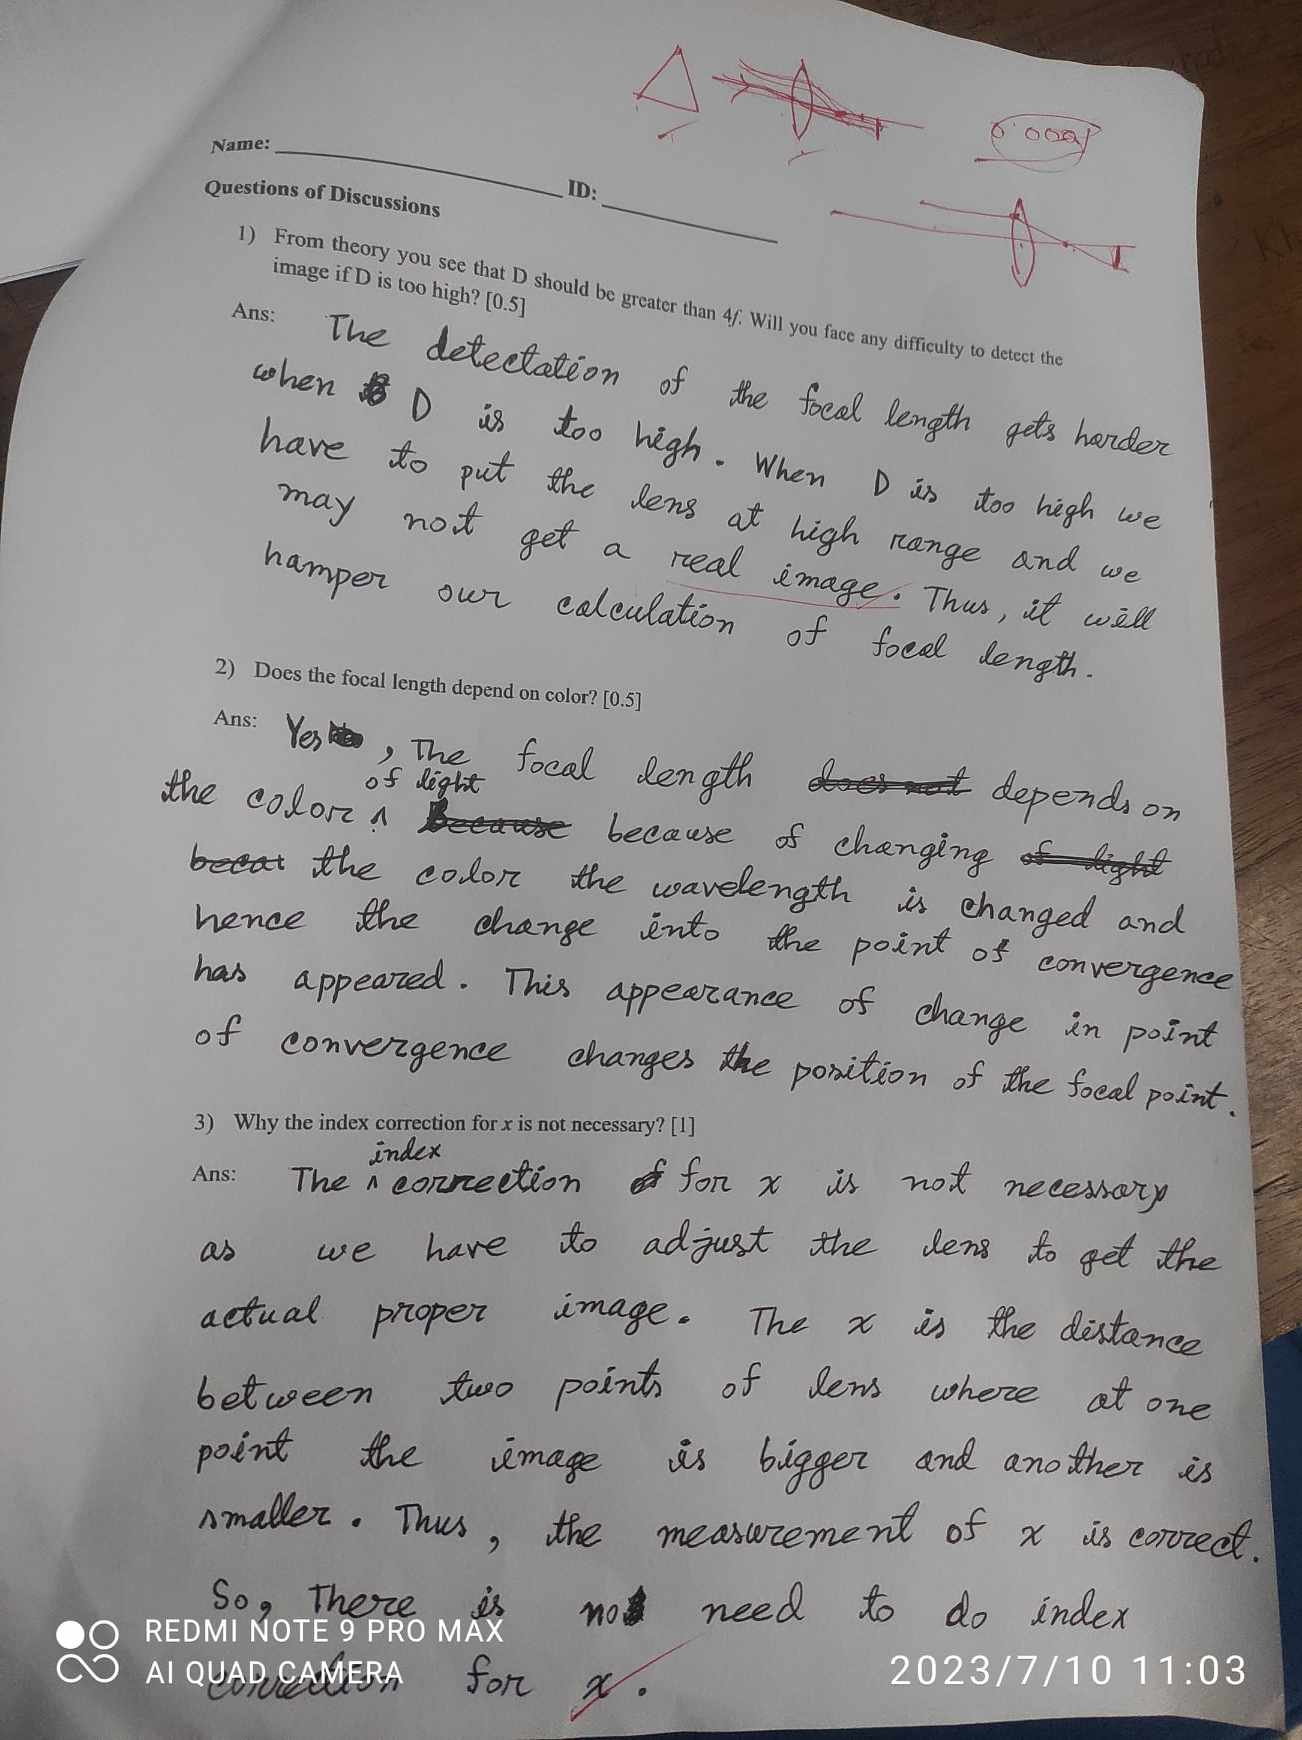 0.0001
Name: ID:
Questions of Discussions
1) From theory you see that D should be greater than 4f. Will you face any difficulty to detect the
image if D is too high? [0.5]
Ans: The detectation of the focal length gets harder
when D is too high. When D is too high we
have to put the lens at high range and we
may not get a real image. Thus, it will
hamper our calculation of focal length.
2) Does the focal length depend on color? [0.5]
Ans: Yes, The focal length does not depends on
the color of light Because because of changing of light
becat the color the wavelength is changed and
hence the change into the point of convergence
has appeared. This appearance of change in point
of convergence changes the position of the focal point.
3) Why the index correction for x is not necessary? [1]
Ans: The index correction for x is not necessary
as we have to adjust the lens to get the
actual proper image. The x is the distance
between two points of lens where at one
point the image is bigger and another is
smaller. Thus, the measurement of x is correct.
So, There is no need to do index
correction for x.
REDMI NOTE 9 PRO MAX
AI QUAD CAMERA
2023/7/10 11:03